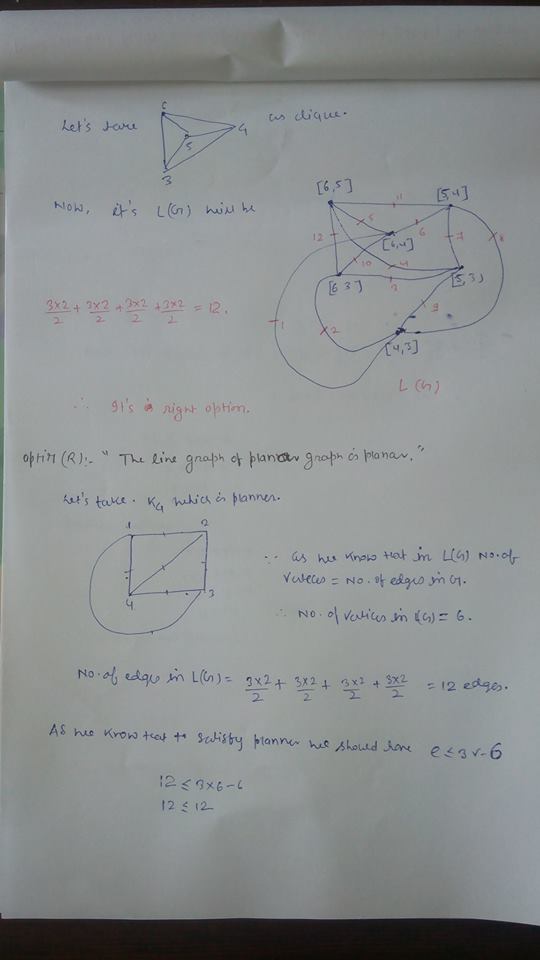 Let's take
6
4
5
3
as clique.
Now, it's L(G) will be
[6,5]
11
[5,4]
5
6
12
[6,4]
7
8
10
4
[6 3]
3
[5,3)
1
2
9
[4,3]
L(G)
3x2/2 + 3x2/2 + 3x2/2 + 3x2/2 = 12.
∴ It's right option.
option (R):- " The line graph of planar graph is planar."
Let's take. K4 which is planner.
1
2
4
3
∵ as we know that in L(G) No. of
vatices = No. of edges in G.
∴ No. of vatices in L(G) = 6.
No. of edges in L(G) = 3x2/2 + 3x2/2 + 3x2/2 + 3x2/2 = 12 edges.
As we know that to satisfy planner we should have e ≤ 3v-6
12 ≤ 3x6-6
12 ≤ 12